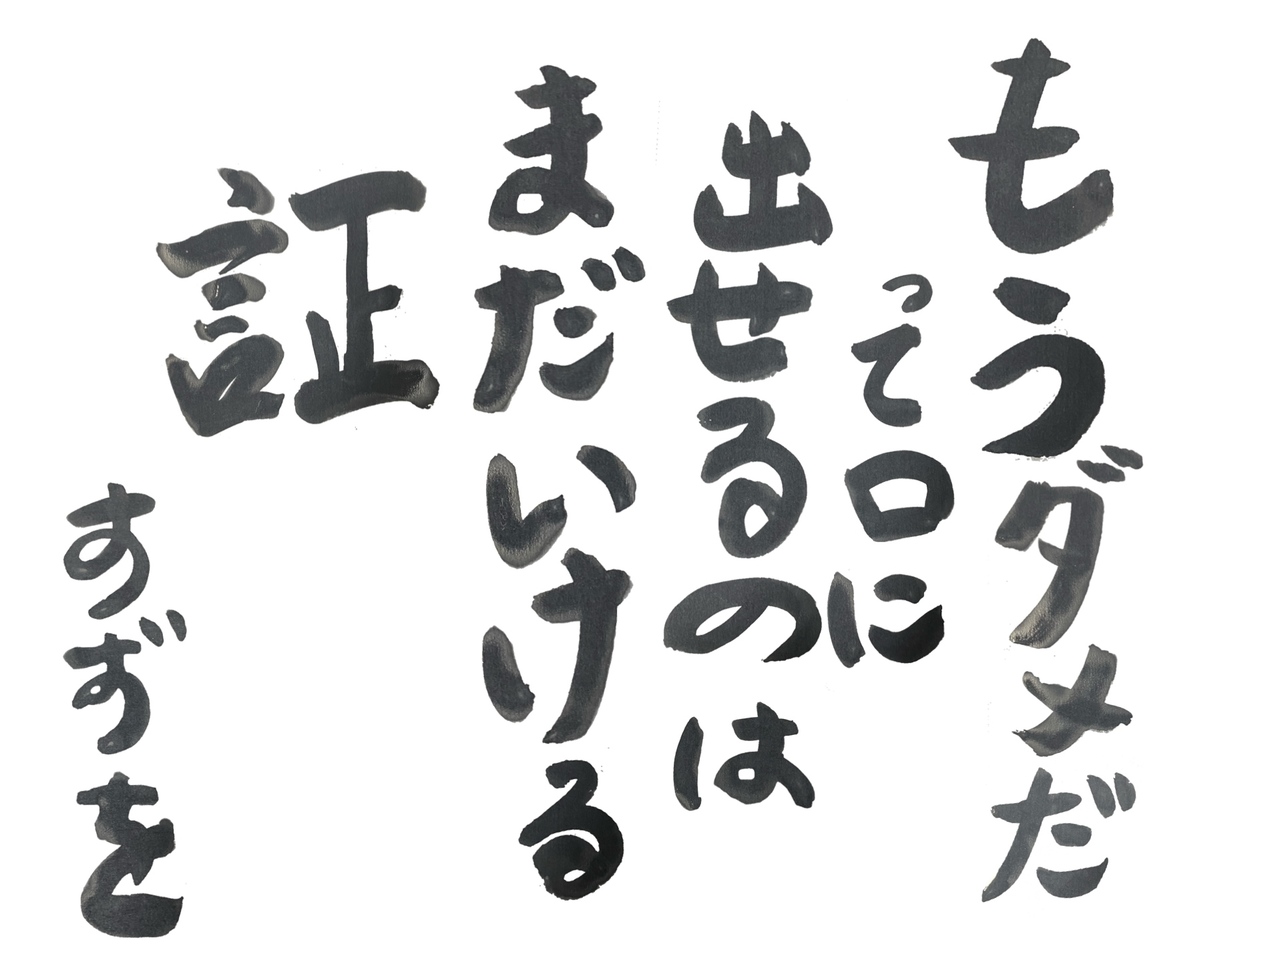 もうダメだ
って口に
出せるのは
まだいける
証
すずを